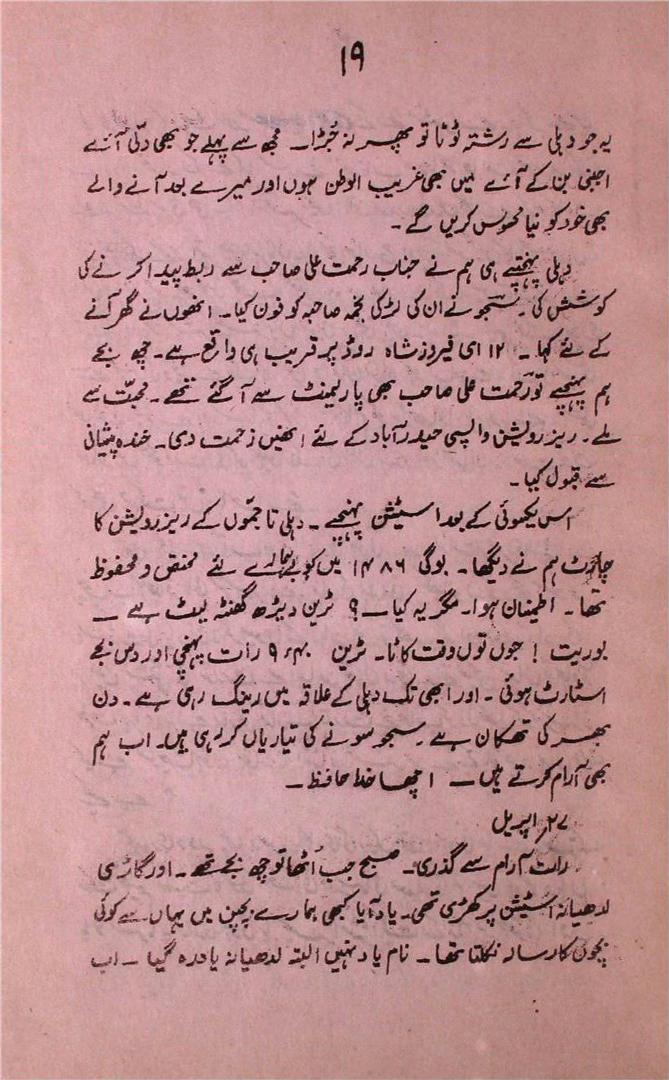 ۱۹
یہ جو دہلی سے رشتہ ٹوٹا تو پھر نہ جُڑا۔ مجھ سے پہلے جو بھی دلّی آئے
اجنبی بن کے آئے میں بھی غریب الوطن ہوں اور میرے بعد آنے والے
بھی خود کو نیا محسوس کریں گے۔
دہلی پہنچتے ہی ہم نے جناب رحمت علی صاحب سے ربط پیدا کرنے کی
کوشش کی۔ سجو نے ان کی لڑکی نجمہ صاحبہ کو فون کیا۔ انھوں نے گھر آنے
کے لئے کہا۔ ۱۲ ای فیروز شاہ روڈ پر قریب ہی واقع ہے۔ چھ بجے
ہم پہنچے تو رحمت علی صاحب بھی پارلیمنٹ سے آ گئے تھے۔ محبّت سے
ملے۔ ریزرویشن واپسی حیدرآباد کے لئے انھیں زحمت دی۔ خندہ پیشانی
سے قبول کیا۔
اس یکسوئی کے بعد اسٹیشن پہنچے۔ دہلی تا جمّوں کے ریزرویشن کا
چارٹ ہم نے دیکھا۔ بوگی ۱۴۸۶ میں کوپے ہمارے لئے مختص و محفوظ
تھا۔ اطمینان ہوا۔ مگر یہ کیا۔؟ ٹرین دیڑھ گھنٹہ لیٹ ہے۔
بوریت! جوں توں وقت کاٹا۔ ٹرین ۹،۴۰ رات پہنچی اور دس بجے
اسٹارٹ ہوئی۔ اور ابھی تک دہلی کے علاقہ میں رینگ رہی ہے۔ دن
بھر کی تھکان ہے۔ سجو سونے کی تیاریاں کر رہی ہیں۔ اب ہم
بھی آرام کرتے ہیں۔ اچھا خدا حافظ۔
۲۷؍ اپریل
رات آرام سے گذری۔ صبح جب اُٹھا تو چھ بجے تھے۔ اور گاڑی
لدھیانہ اسٹیشن پر کھڑی تھی۔ یاد آیا کبھی ہمارے بچپن میں یہاں سے کوئی
بچوں کا رسالہ نکلتا تھا۔ نام یاد نہیں البتہ لدھیانہ یاد رہ گیا۔ اب